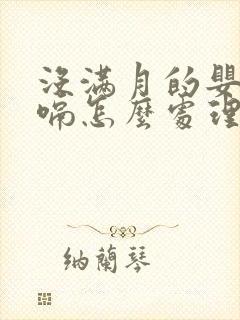 沒滿月的嬰
喘怎麼處理
納蘭琴